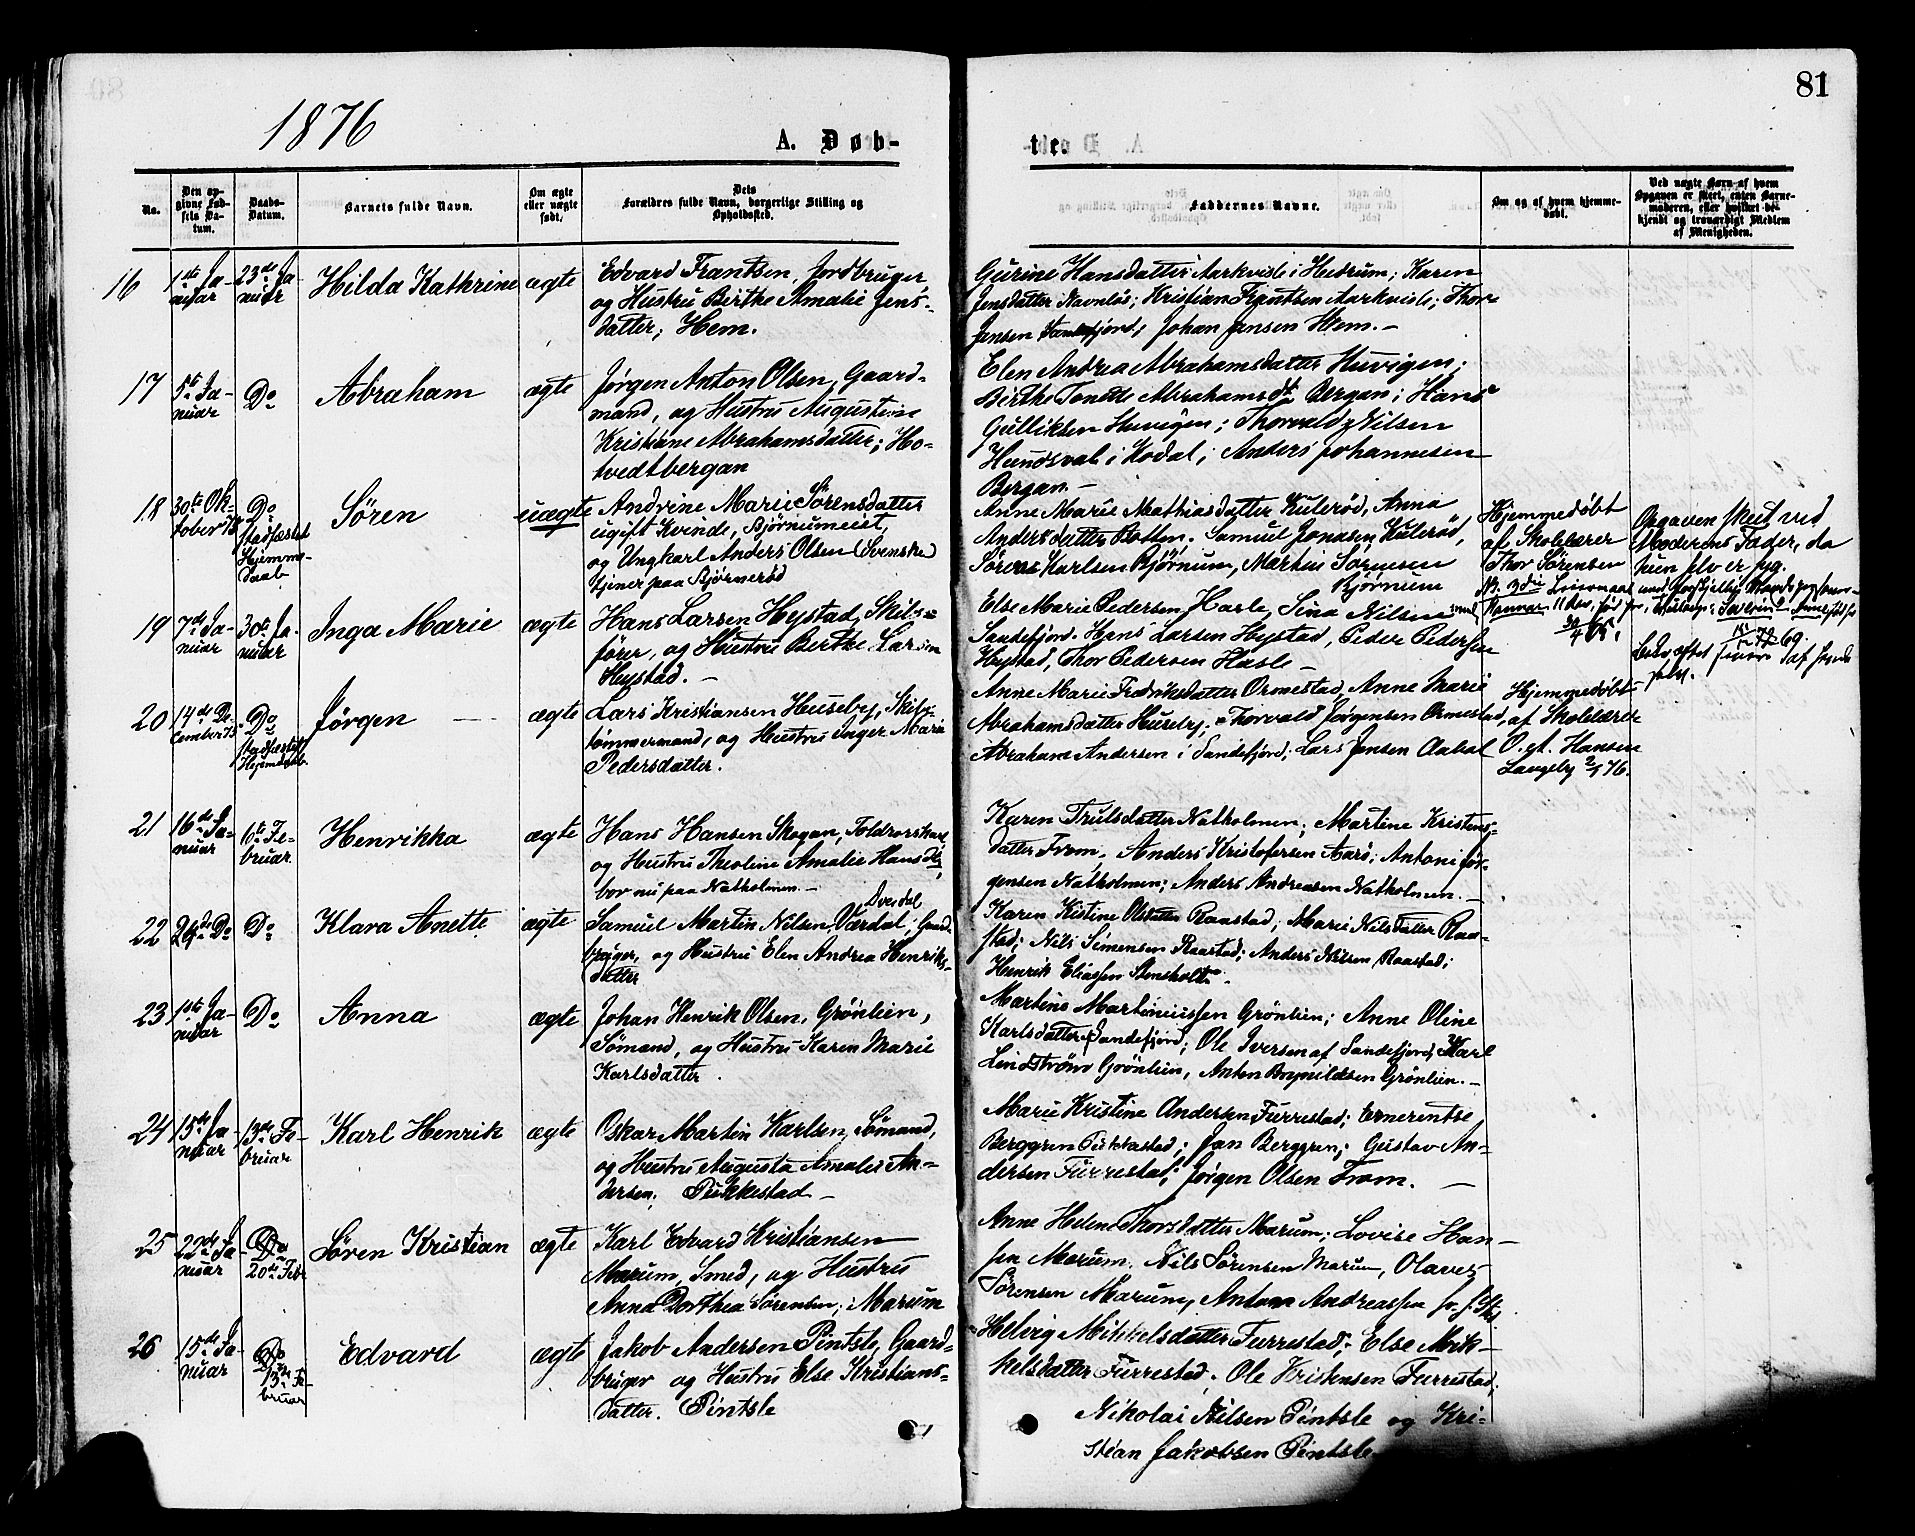 81
1876
A. Døb-
te.
No.
Den op-
givne Fød-
sels Da-
tum.
Daabs-
Datum.
Barnets fulde Navn.
Om ægte
eller uægte
født.
Dets
Forældres fulde Navn, borgerlige Stilling og
Opholdssted.
Faddernes Navne.
Om og af hvem hjemme-
døbt.
Ved uægte Børn af hvem
Opgaven er skeet, enten Barne-
moderen, eller hvilket be-
kjendt og troværdigt Medlem
af Menigheden.
16
1ste Ja-
nuar
23de Ja-
nuar
Hilda Kathrine
ægte
Edvard Frantsen, Jordbruger,
og Hustru Birthe Amalie Jens-
datter; Hem.
Gurine Hansdatter Aarkvisle i Hedrum; Karen
Jensdatter Navnløs; Kristian Frantsen Aarkvisle; Thor
Jensen Sandefjord; Johan Jensen Hem. —
17
5te Ja-
nuar
Do
Abraham
ægte
Jørgen Anton Olsen, Gaard-
mand, og Hustru Augustine
Kristiane Abrahamsdatter; Ho-
tvedtbergan
Elen Andrea Abrahamsdatter Huvigen;
Birthe Tonette Abrahamsdt. Bergan; Hans
Gulliksen Huvigen; Thorvald Nilsen
Hundsval i Kodal; Anders Johannesen
Bergan. —
18
30te Ok-
tober 75
Do
stadfæstet
Hjemme-
daab
Søren
uægte
Andrine Marie Sørensdatter
ugift Kvinde, Bjørnumeiet,
og Ungkarl Anders Olsen (Svenske)
tjener paa Bjørnerød
Anne Marie Mathiasdatter Kulerød, Anna
Andersdatter Botten. Samuel Jonasen Kulerød,
Søren Karlsen Bjørnum, Martius Sørensen
Bjørnum
Hjemmedøbt
af Skolelærer
Thor Sørensen
Opgaven skeet ved
Moderens Fader, da
hun selv er syg.
NB. 3die Leiermaal
19
7de Ja-
nuar
30te Ja-
nuar
Inga Marie
ægte
Hans Larsen Hystad, Skibs-
fører, og Hustru Berthe Larsen
Hystad. —
Else Marie Pedersen Hasle, Sina Nilsen
Sandefjord. Hans Larsen Hystad, Peder Pedersen
Hystad, Thor Pedersen Hasle —
20
14de De-
cember 75
Do
stadfæstet
Hjemdaab
Jørgen
ægte
Lars Kristiansen Huseby, Skibs-
tømmermand, og Hustru Inger Marie
Pedersdatter.
Anne Marie Fredriksdatter Ormestad, Anne Marie
Abrahamsdatter Huseby. Thorvald Jørgensen Ormestad,
Abraham Andersen i Sandefjord; Lars Jensen Aabøl
Hjemmedøbt
af Skolelærer
O. A. Hansen
Langeby 2/1 76.
21
16de Ja-
nuar
6te Fe-
bruar
Henrikka
ægte
Hans Hansen Skogan, Toldrorskarl,
og Hustru Theoline Amalie Hansdtr,
bor nu paa Natholmen. —
Karen Trulsdatter Natholmen; Martine Kristens-
datter From. Anders Kristofersen Aarø; Antoni Jør-
gensen Natholmen; Anders Andreasen Natholmen. —
22
29de Do
Do
Klara Anette
ægte
Dverdal
Samuel Martin Nilsen Værdal; Gaard-
bruger, og Hustru Elen Andrea Henriks-
datter
Karen Kistine Olsdatter Raastad; Marie Nilsdatter Raa-
stad; Nils Simensen Raastad; Anders Nilsen Raastad;
Henrik Eliassen Stensholt.
23
1ste Ja-
nuar
Do
Anna
ægte
Johan Henrik Olsen, Grönlien,
Sømand, og Hustru Karen Marie
Karlsdatter.
Martine Martiniussen Grönlien; Anne Oline
Karlsdatter Sandefjord; Ole Iversen af Sandefjord, Karl
Lindstrøm Grönlien, Anton Brynildsen Grönlien. —
24
15de Ja-
nuar
13de Fe-
bruar
Karl Henrik
ægte
Oskar Martin Karlsen, Sömand,
og Hustru Augusta Amalie An-
dersen; Pukkestad —
Marie Kristine Andersen Furrestad; Ernerentse
Berggren Pukkestad; Jan Berggren; Gustav An-
dersen Furrestad; Jörgen Olsen From. —
25
23de Ja-
nuar
Do
20de Febr
Søren Kristian
ægte
Karl Edvard Kristiansen
Marum, Smed, og Hustru
Anna Dorthea Sørensen; Marum
Anne Helene Thorsdatter Marum; Lovise Han-
sen Marum. Nils Sørensen Marum, Olaves
Sørensen Marum, Anton Andreassen
26
15de Ja-
nuar
Do
13de Fe-
bruar
Edvard
ægte
Jakob Andersen Pintsle, Gaard-
bruger og Hustru Else Kristians-
datter. Pintsle
Helvig Mikkelsdatter Furrestad; Else Mik-
kelsdatter Furrestad. Ole Kristensen Furrestad;
Nikolai Nilsen Pintsle og Kri-
stian Jakobsen Pintsle